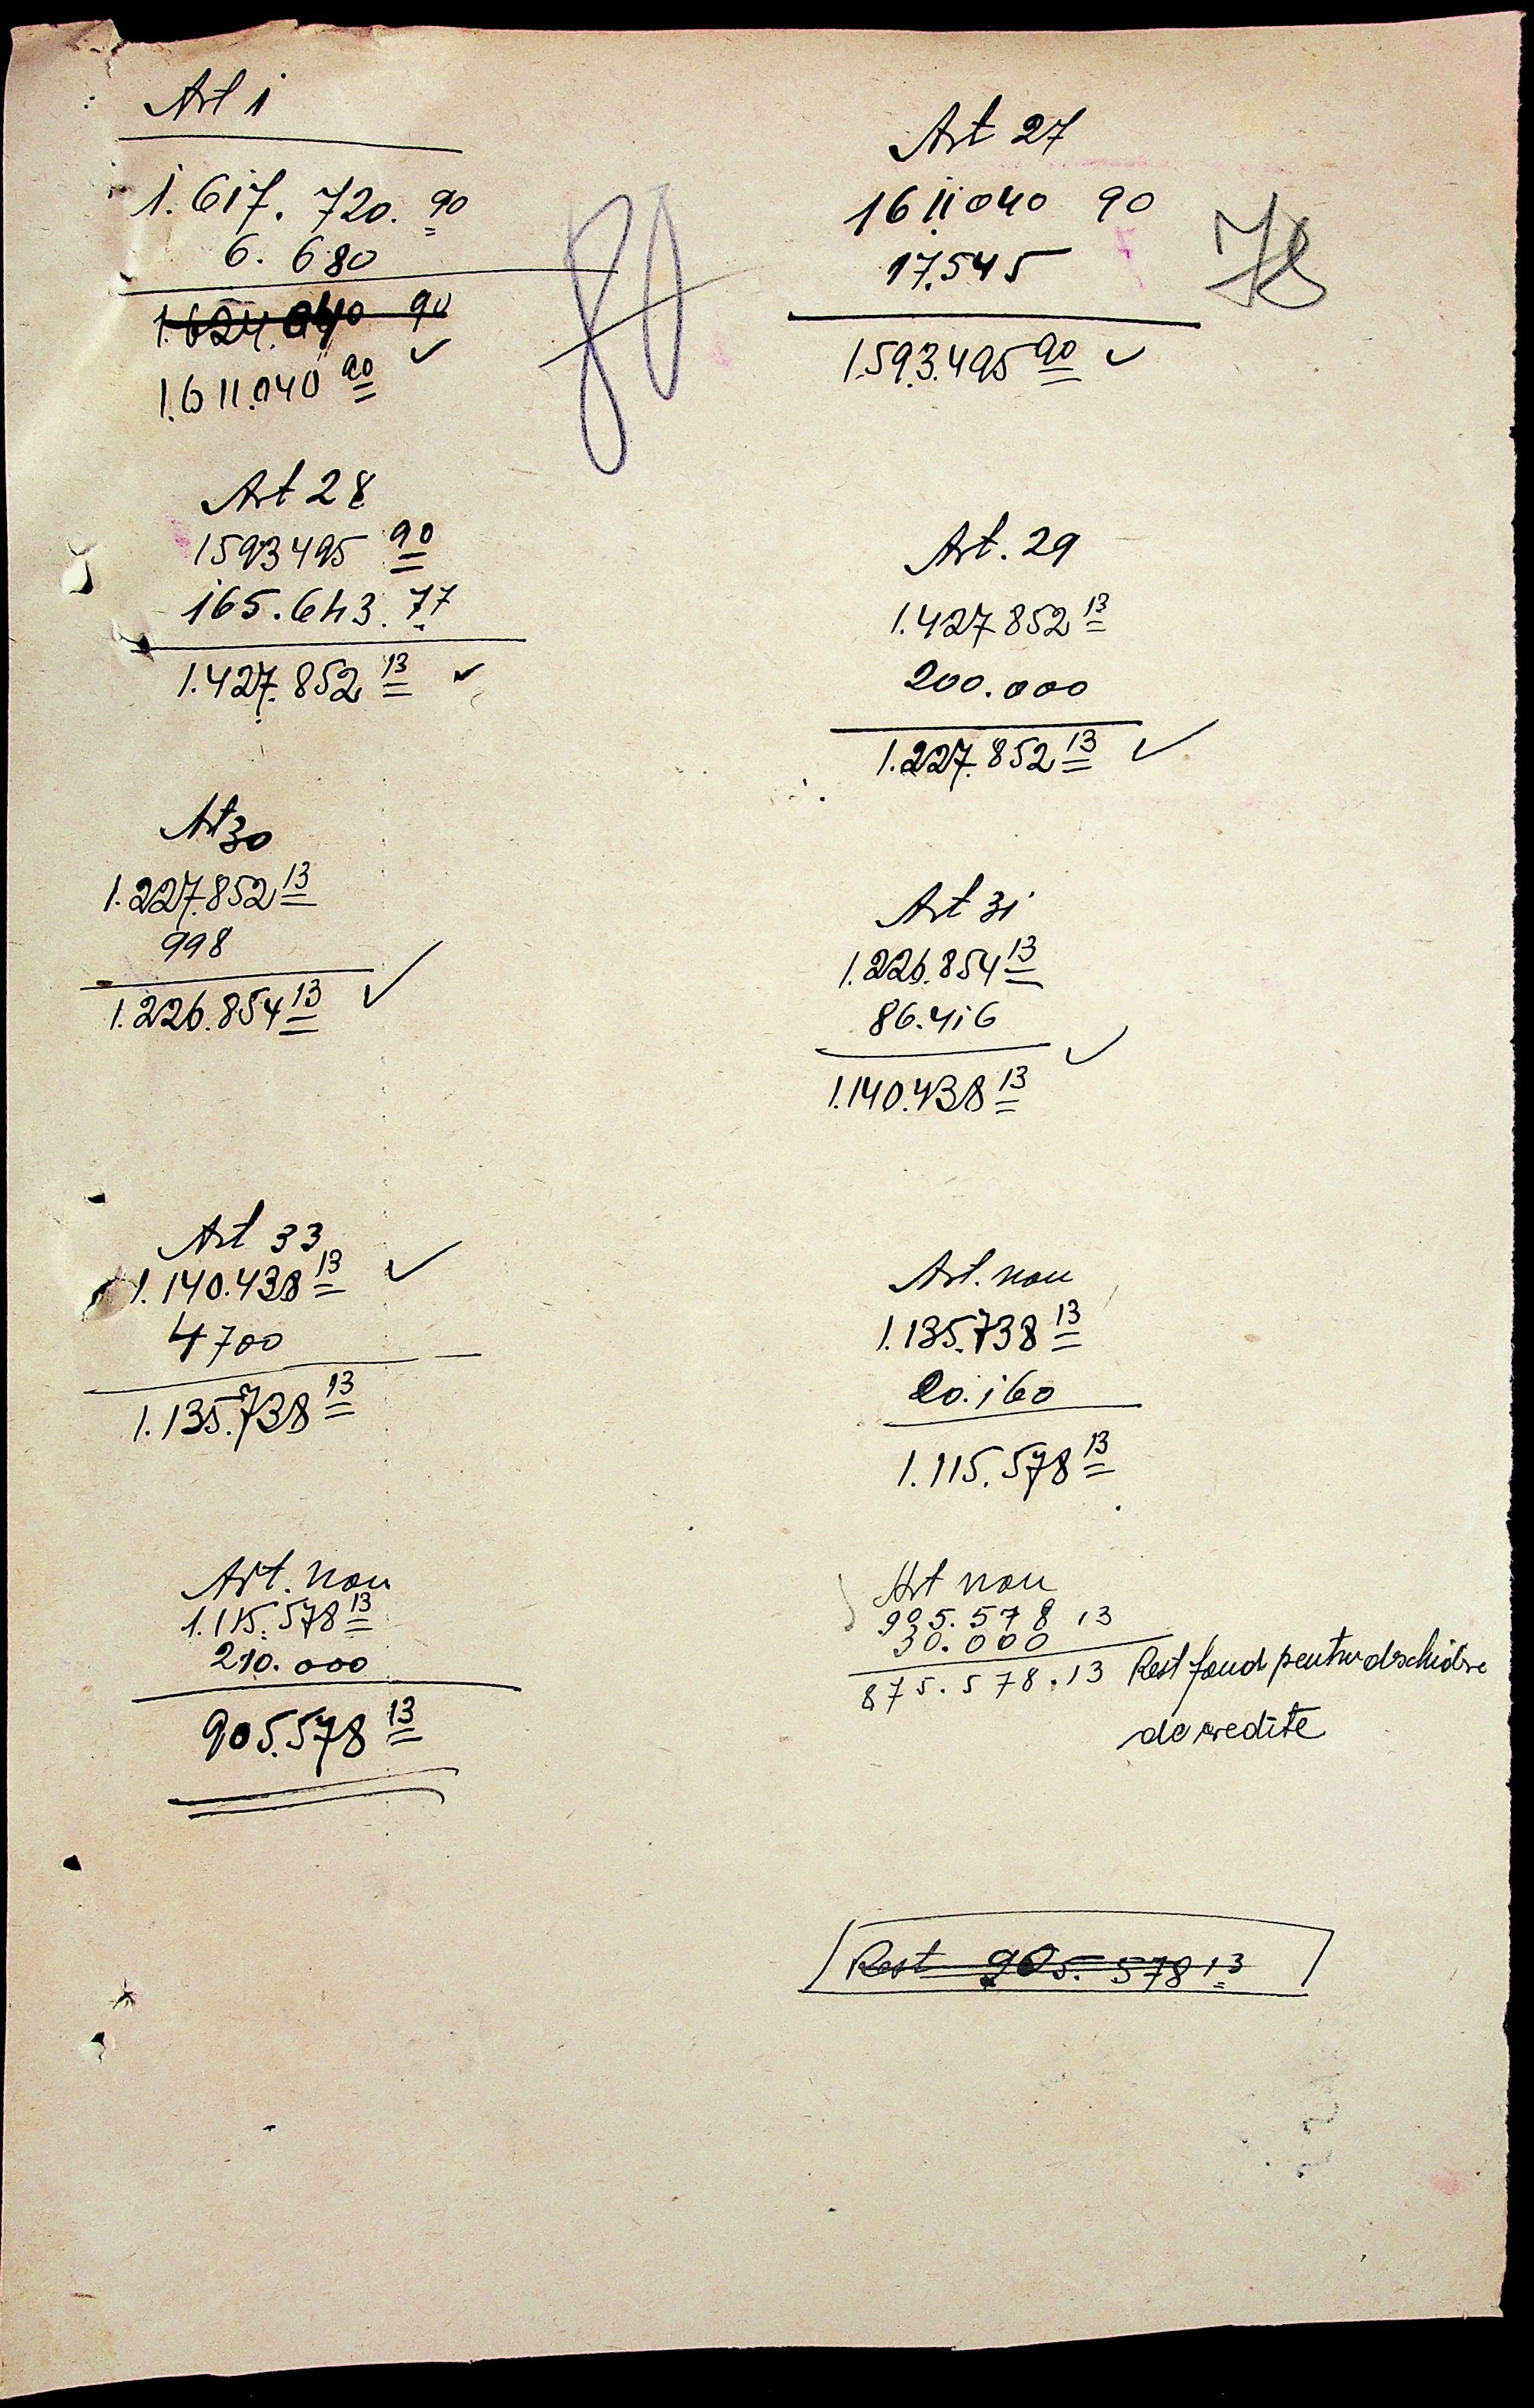 Art 1
1.617.720.90
6.680
1.624.040 90
1.611.040 90
80
Art 27
1611040 90
17.545
1.593.495 90
78
Art 28
1593495 90
165.643.77
1.427.852 13
Art. 29
1.427852 13
200.000
1.227.852 13
Art 30
1.227.852 13
998
1.226.854 13
Art 31
1.226.854 13
86.416
1.140.438 13
Art 33
1.140.438 13
4700
1.135.738 13
Art. nou
1.135.738 13
20.160
1.115.578 13
Art. nou
1.115.578 13
210.000
905.578 13
Art nou
905.578 13
30.000
875.578.13 Rest fond pentru deschidere
de credite
Rest 905.578 13